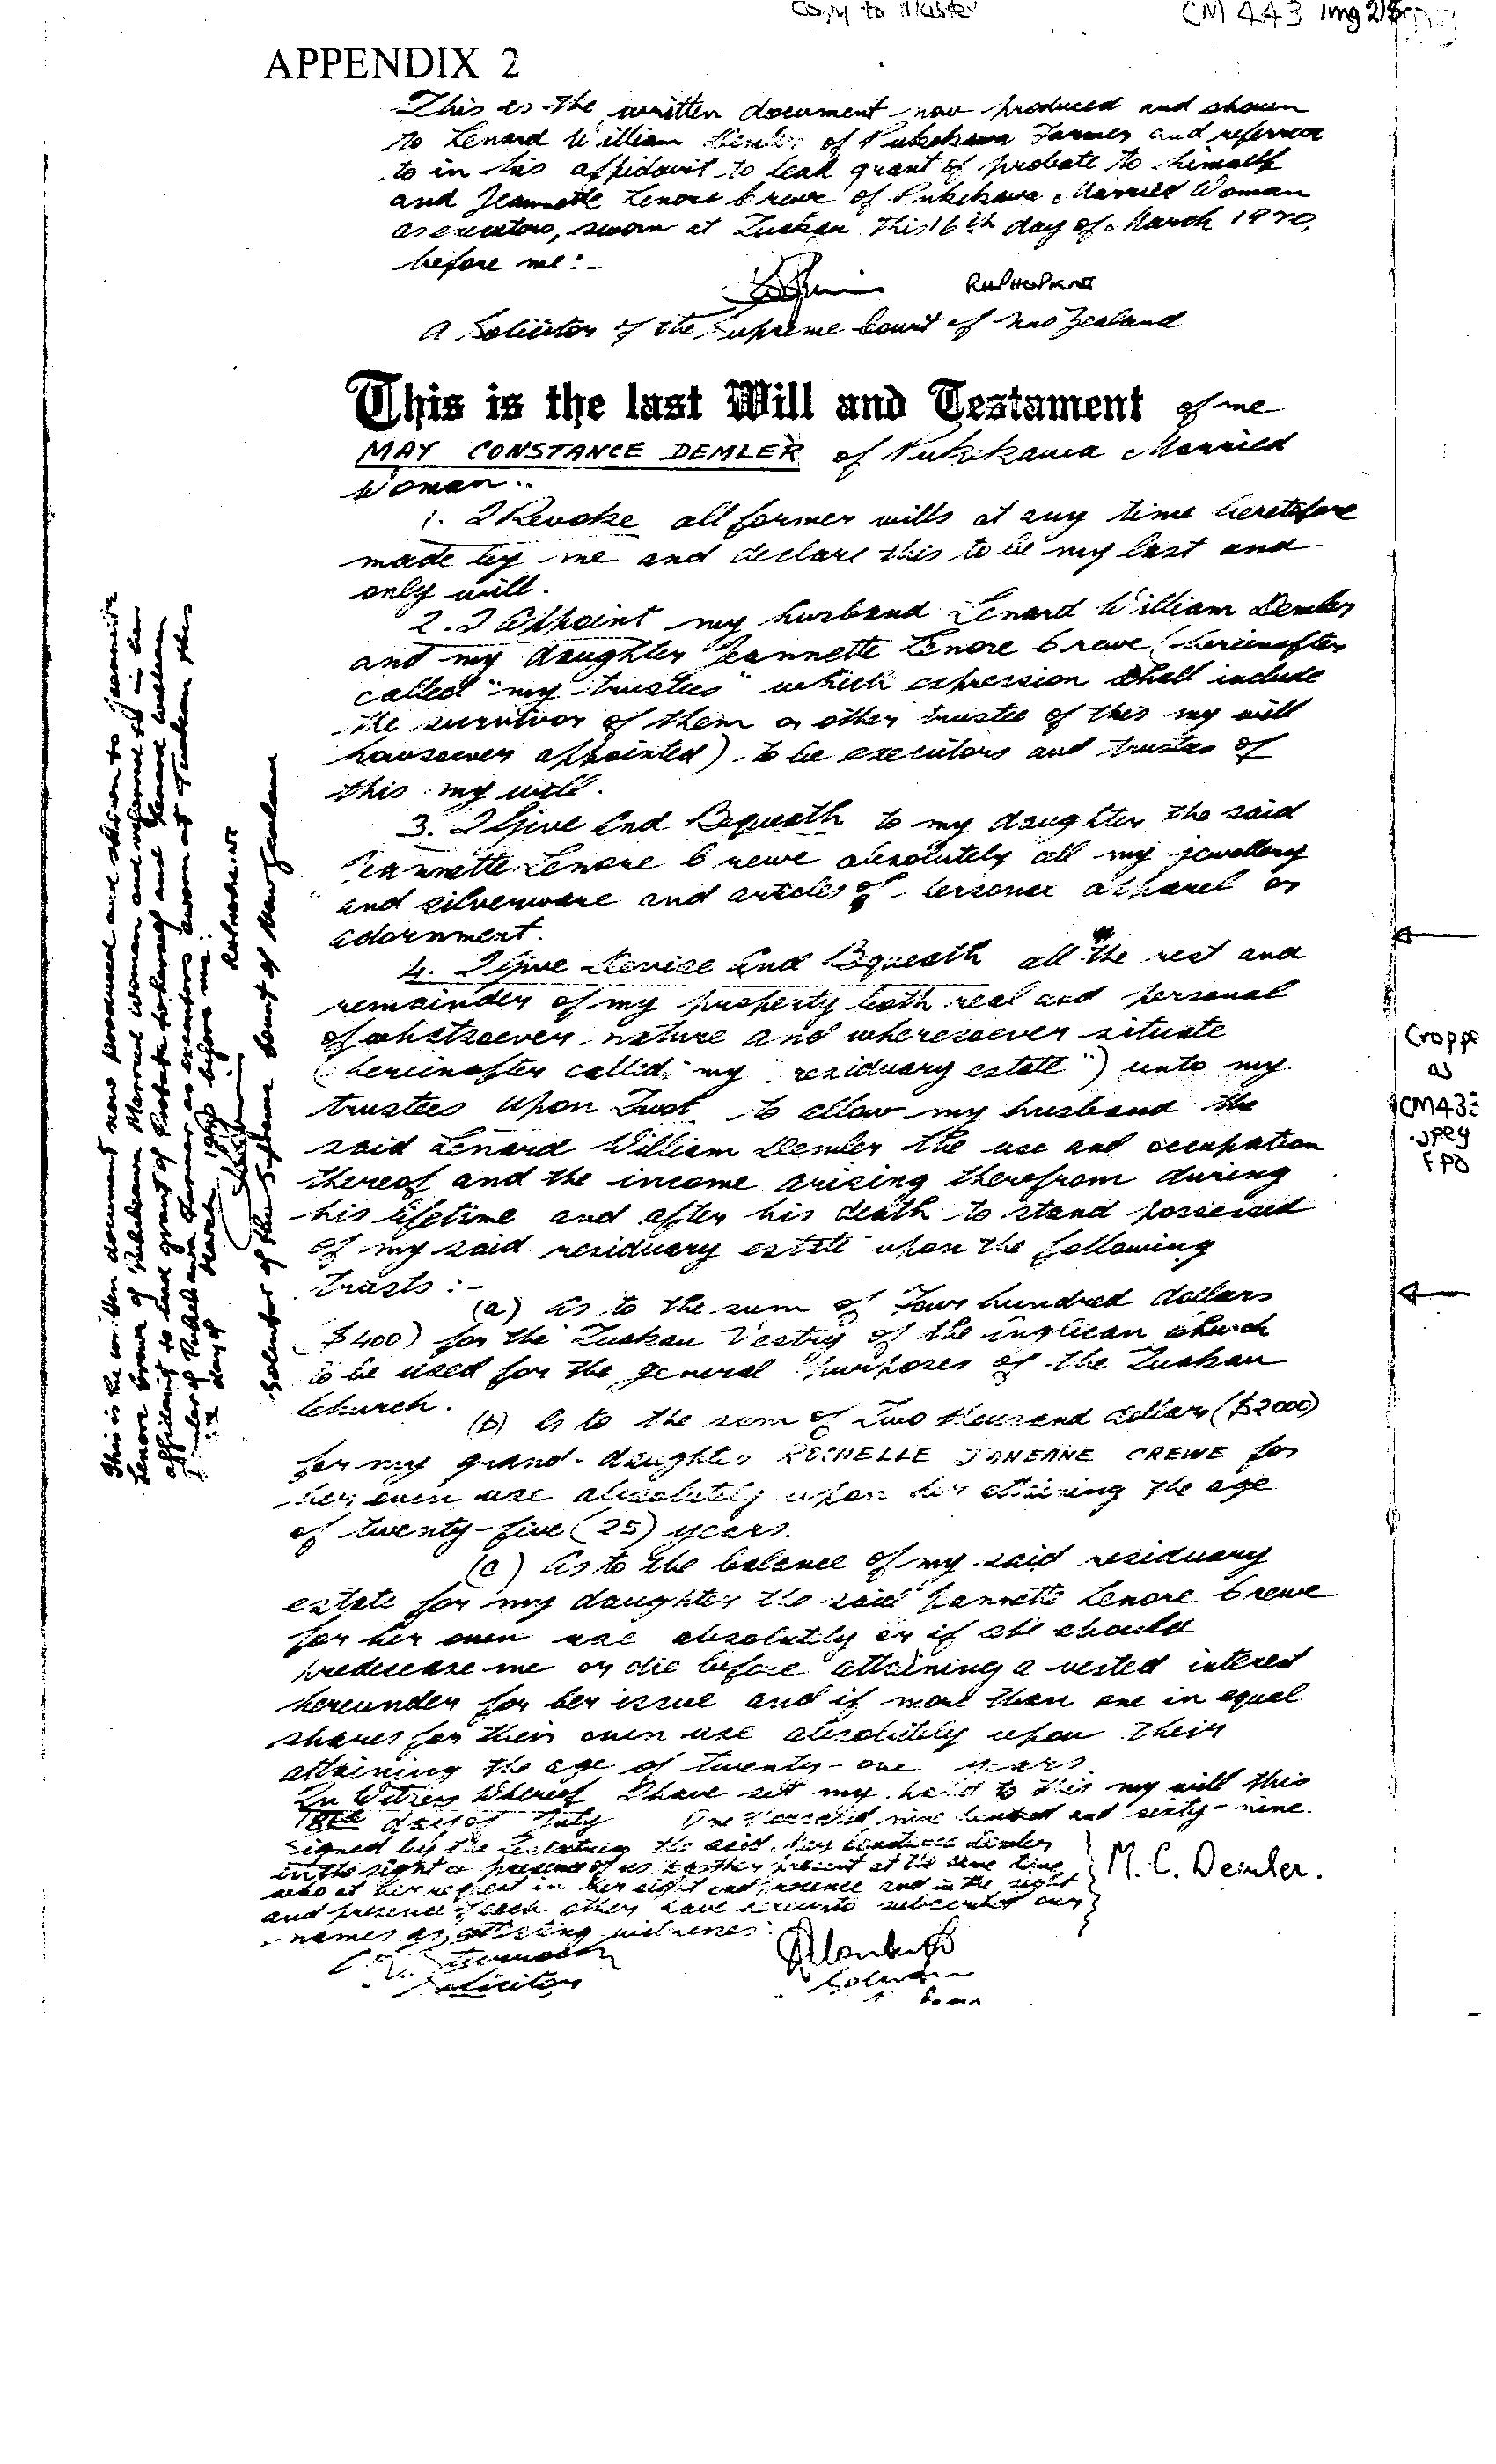 Copy to Master
CM 443 Img 215
APPENDIX 2
This is the written document now produced and shown
to Lenard William Demler of Pukekawa Farmer and referred
to in his affidavit to lead grant of probate to himself
and Jeannette Lenore Crewe of Pukekawa Married Woman
as executors, sworn at Tuakau this 16th day of March 1970,
before me:-
A Solicitor of the Supreme Court of New Zealand
This is the last Will and Testament of me
MAY CONSTANCE DEMLER of Pukekawa Married
Woman..
1. I Revoke all former wills at any time heretofore
made by me and declare this to be my last and
only will.
2. I Appoint my husband Lenard William Demler
and my daughter Jeannette Lenore Crewe (hereinafter
called "my trustees" which expression shall include
the survivor of them or other trustee of this my will
howsoever appointed) to be executors and trustees of
this my will.
3. I Give And Bequeath to my daughter the said
Jeannette Lenore Crewe absolutely all my jewellery
and silverware and articles of personal apparel or
adornment.
4. I Give Devise And Bequeath all the rest and
remainder of my property both real and personal
of whatsoever nature and wheresoever situate
(hereinafter called "my residuary estate") unto my
trustees Upon Trust to allow my husband the
said Lenard William Demler the use and occupation
thereof and the income arising therefrom during
his lifetime and after his death to stand possessed
of my said residuary estate upon the following
trusts:-
(a) As to the sum of Four hundred dollars
($400) for the Tuakau Vestry of the Anglican church
to be used for the general purposes of the Tuakau
Church.
(b) As to the sum of Two thousand dollars ($2000)
for my grand-daughter ROCHELLE JOHEANE CREWE for
her own use absolutely upon her attaining the age
of twenty-five (25) years.
(c) As to the balance of my said residuary
estate for my daughter the said Jannette Lenore Crewe
for her own use absolutely or if she should
predecease me or die before attaining a vested interest
hereunder for her issue and if more than one in equal
shares for their own use absolutely upon their
attaining the age of twenty-one years.
In Witness Whereof I have set my hand to this my will this
18th day of July One thousand nine hundred and sixty-nine.
Signed by the Testatrix the said May Constance Demler
in the sight & presence of us together present at the same time
who at her request in her sight and presence and in the sight
and presence of each other have hereunto subscribed our
names as attesting witnesses:
M. C. Demler.
Solicitor
This is the written document now produced and shown to Jeannette
Lenore Crewe of Pukekawa Married woman and referred to in her
affidavit to lead grant of Probate to herself and Lenard William
Demler of Pukekawa Farmer as executors sworn at Tuakau this
day of March before me:
Solicitor of the Supreme Court of New Zealand
as
CM433
.jpeg
FPO